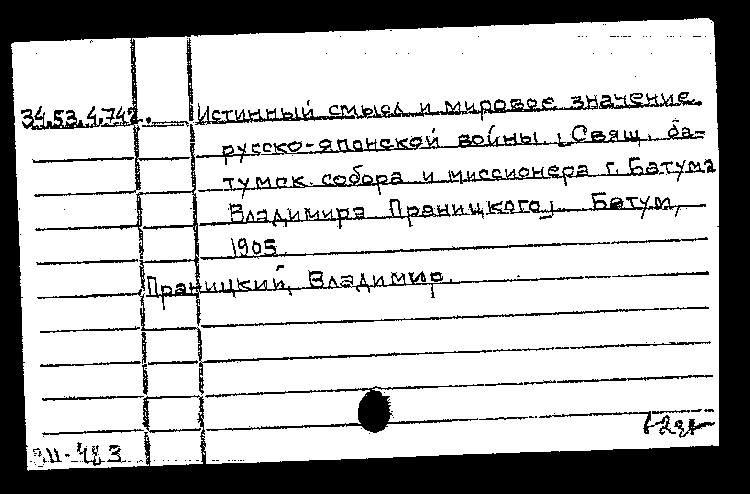 34.53.4.742. Истинный смысл и мировое значение.
русско-японской войны. [Свящ. ба-
тумск. собора и миссионера г. Батума
Владимира Праницкого]. Батум,
1905.
Праницкий, Владимир.